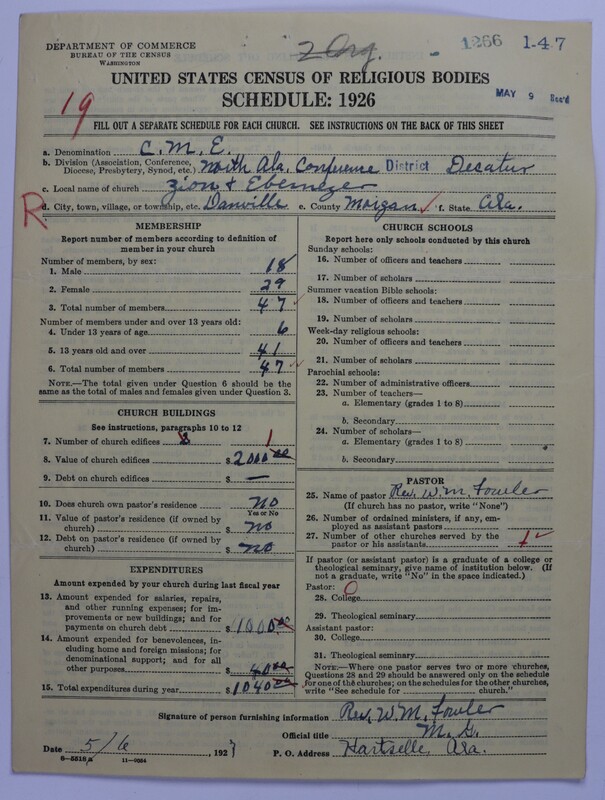 DEPARTMENT OF COMMERCE
BUREAU OF THE CENSUS
WASHINGTON
2 Org.
1266
1-47
MAY 9 Rec'd
UNITED STATES CENSUS OF RELIGIOUS BODIES
SCHEDULE: 1926
19
FILL OUT A SEPARATE SCHEDULE FOR EACH CHURCH. SEE INSTRUCTIONS ON THE BACK OF THIS SHEET
a. Denomination C. M. E.
b. Division (Association, Conference, Diocese, Presbytery, Synod, etc.) North Ala. Conference District Decatur
c. Local name of church Zion + Ebenezer
R
d. City, town, village, or township, etc. Danville e. County Morgan f. State Ala.
MEMBERSHIP
Report number of members according to definition of
member in your church
Number of members, by sex:
1. Male 18
2. Female 29
3. Total number of members 47
Number of members under and over 13 years old:
4. Under 13 years of age 6
5. 13 years old and over 41
6. Total number of members 47
NOTE.—The total given under Question 6 should be
same as the total of males and females given under Question 3.
CHURCH BUILDINGS
See instructions, paragraphs 10 to 12
7. Number of church edifices 1
8. Value of church edifices $ 2000.00
9. Debt on church edifices $ —
10. Does church own pastor's residence No
Yes or No
11. Value of pastor's residence (if owned by
church) $ No
12. Debt on pastor's residence (if owned by
church) $ No
EXPENDITURES
Amount expended by your church during last fiscal year
13. Amount expended for salaries, repairs,
and other running expenses; for im-
provements or new buildings; and for
payments on church debt $ 1000.00
14. Amount expended for benevolences, in-
cluding home and foreign missions; for
denominational support; and for all
other purposes $ 40.00
15. Total expenditures during year $ 1040.00
CHURCH SCHOOLS
Report here only schools conducted by this church
Sunday schools:
16. Number of officers and teachers
17. Number of scholars
Summer vacation Bible schools:
18. Number of officers and teachers
19. Number of scholars
Week-day religious schools:
20. Number of officers and teachers
21. Number of scholars
Parochial schools:
22. Number of administrative officers
23. Number of teachers—
a. Elementary (grades 1 to 8)
b. Secondary
24. Number of scholars—
a. Elementary (grades 1 to 8)
b. Secondary
PASTOR
25. Name of pastor Rev. W. M. Fowler
(If church has no pastor, write "None")
26. Number of ordained ministers, if any, em-
ployed as assistant pastors
27. Number of other churches served by the
pastor or his assistants
If pastor (or assistant pastor) is a graduate of a college or
theological seminary, give name of institution below. (If
not a graduate, write "No" in the space indicated.)
Pastor:
28. College O
29. Theological seminary
Assistant pastor:
30. College
31. Theological seminary
NOTE.—Where one pastor serves two or more churches,
Questions 28 and 29 should be answered only on the schedule
for one of the churches; on the schedules for the other churches,
write "See schedule for church."
Signature of person furnishing information Rev. W. M. Fowler
Official title M. G.
Date 5/6, 1927
P. O. Address Hartselle, Ala.
8-5518a 11-9004